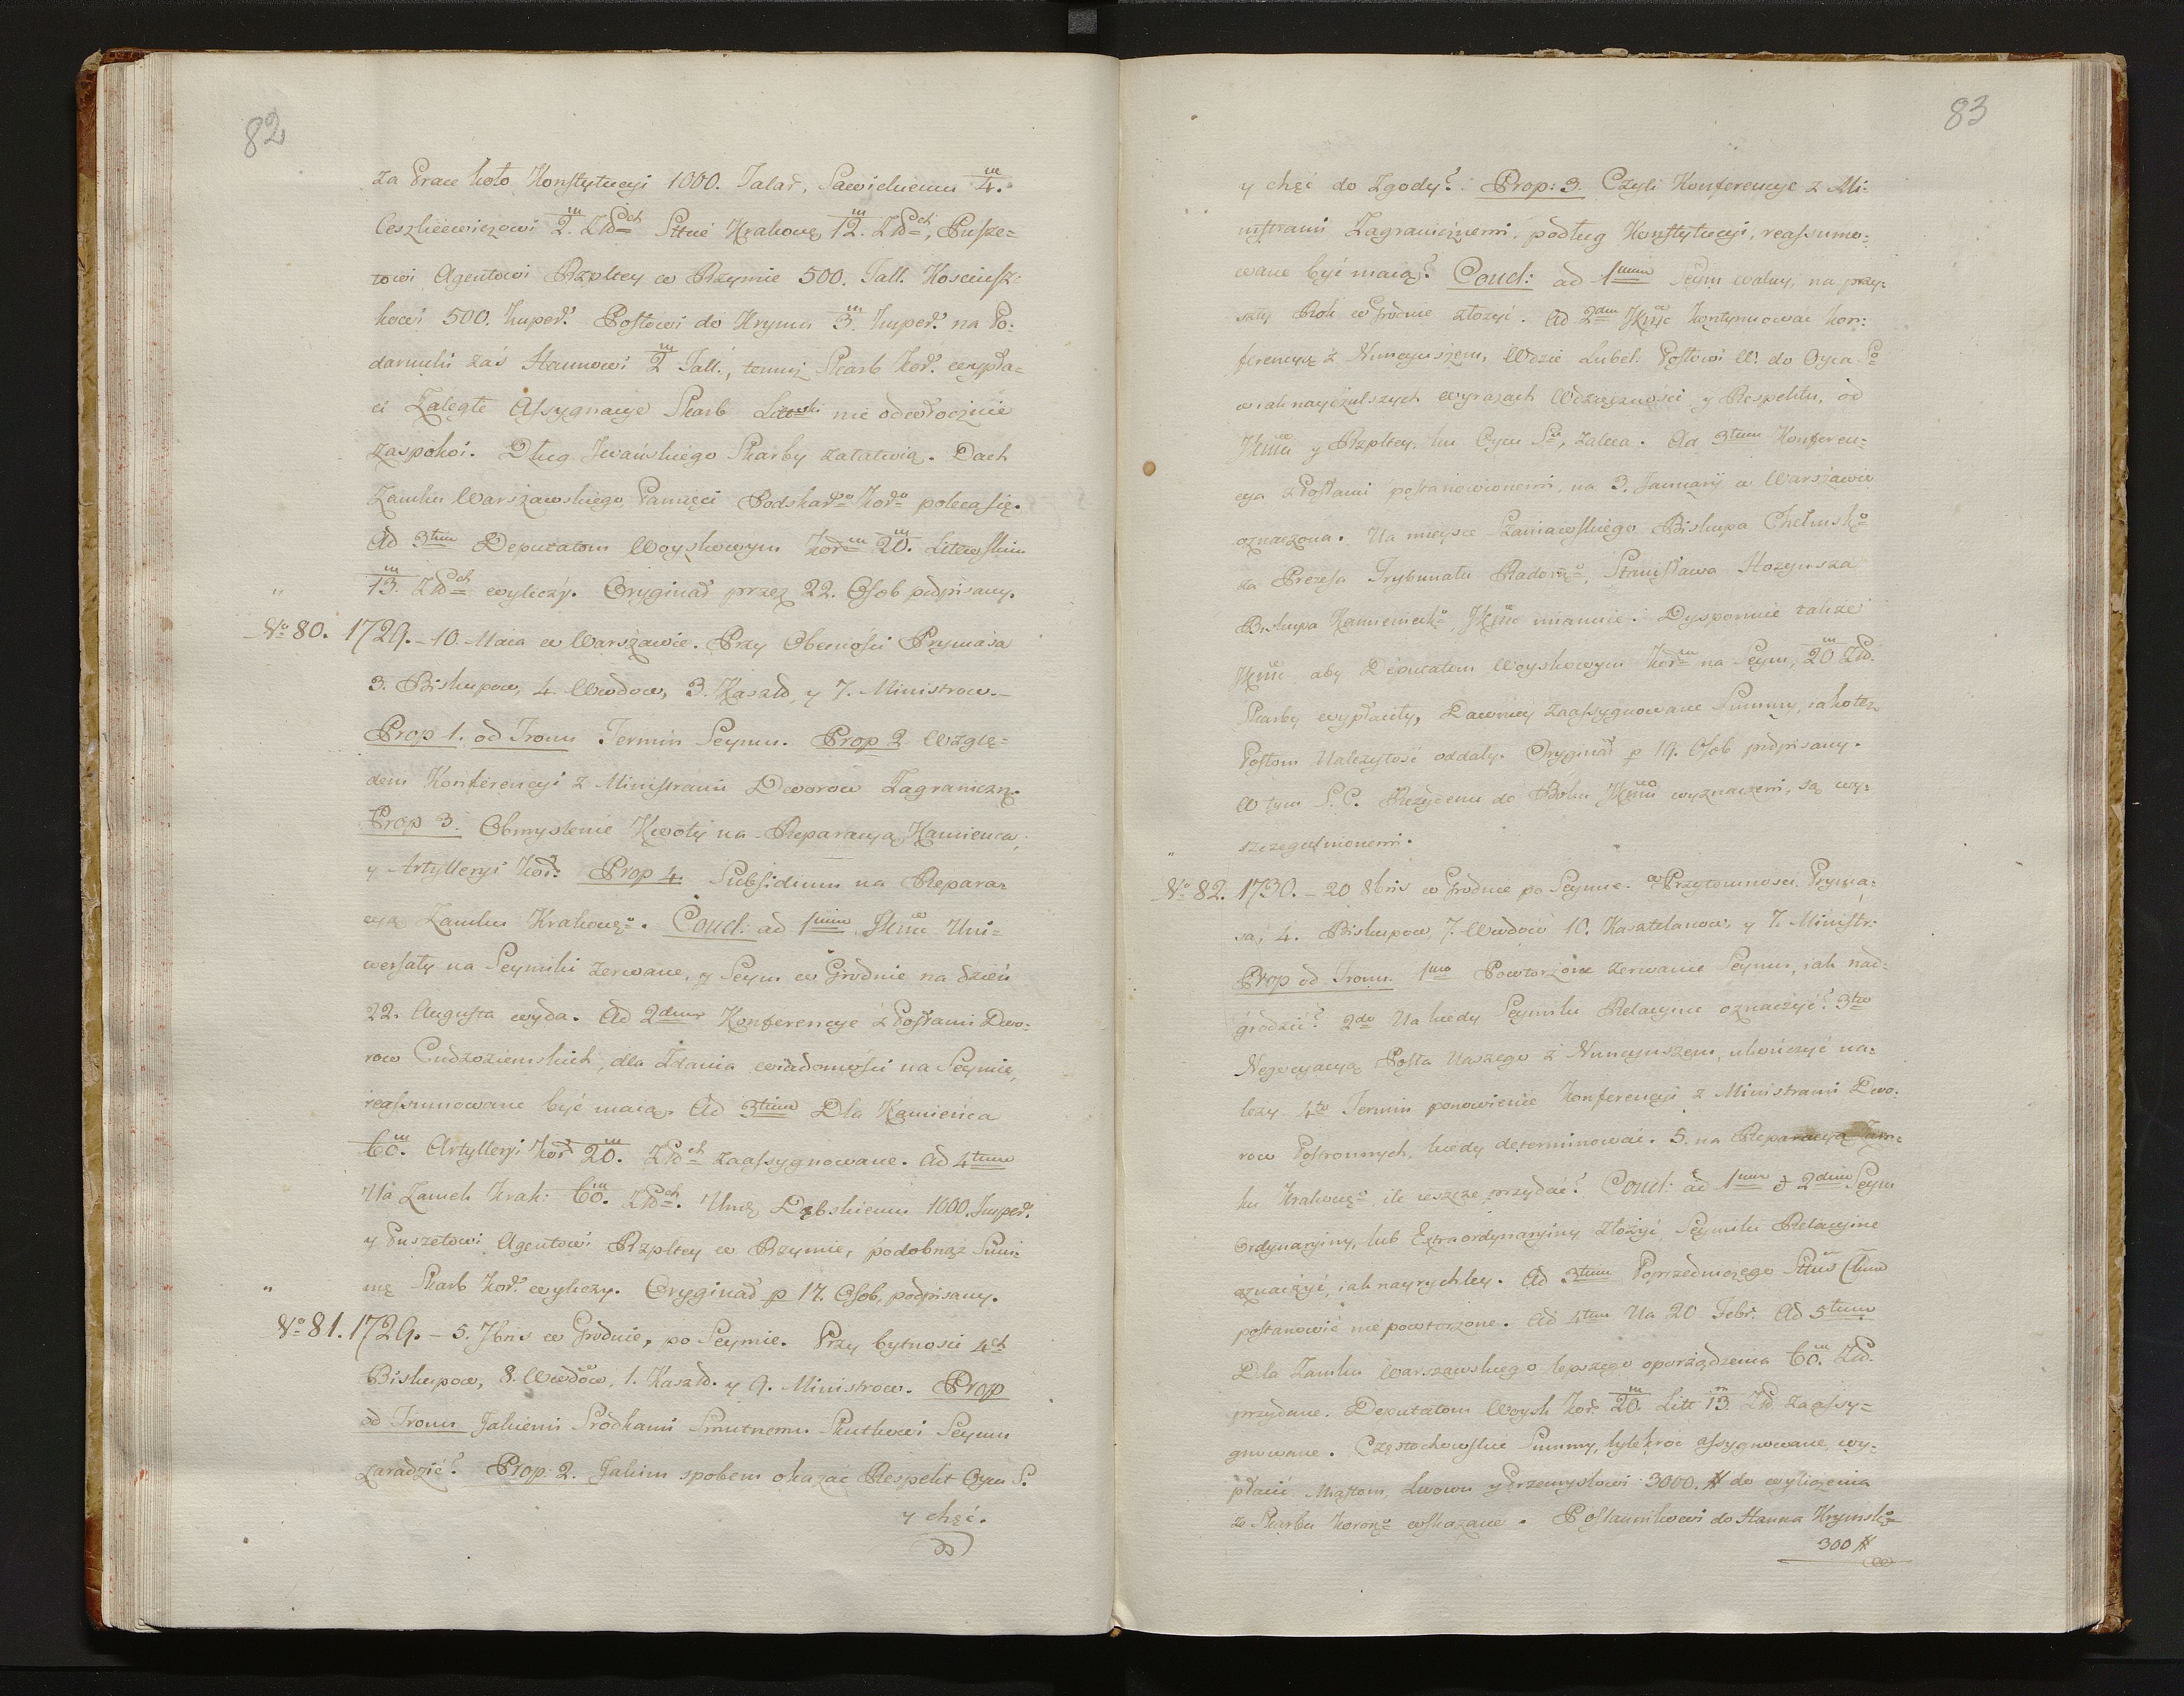 82
za Prace koło Konstytucyi 1000. Talar, Sawickiemu 4.m
Ceszkiewiczowi 2.m Złd ch Sttuę Krakowę 12.m Złd ch, Pusze=
towi Agentowi Rzpltey w Rzymie 500. Tall. Kosciusz=
kowi 500. Imper. Posłowi do Krymu 3.m Imper. na Po=
darunki zaś Hannowi 2m Tall., tenuiż Skarb Kor. wypła=
ci Zaległe Assygnacye Skarb Litewski nie odwłocznie
zaspokoi. Dług Jwańskiego Skarby załatwią. Dach
Zamku Warszawskiego, Pamięci Podskar=go Kor=o poleca się.
Ad 3tum Deputatom Woyskowym Kor=m 20.m Litewskim
13.m Złd ch wyliczy. Oryginał przez 22. Osob podpisany.
No 80. 1729. – 10. Maia w Warszawie. Przy Obecności Prymasa
3. Biskupow, 4. Wwdow, 3. Kaszld, y 7. Ministrow. –
Prop 1. od Tronu Termin Seymu. Prop 2 Wzglę=
dem Konferencyi z Ministrami Dworow Zagraniczn.
Prop 3. Obmyslenie Kwoty na Reparacyą Kamienca,
y Artylleryi Kor. Prop 4. Subsidium na Repara=
cyą Zamku Krakowg=o. Concl: ad 1mum JKmć Uni=
wersały na Seymiki zerwane, y Seym w Grodnie na dzień
22. Augusta wyda. Ad 2dum Konferencye z Posłami Dwo=
row Cudzoziemskich, dla Zdania wiadomości na Seymie,
reassumowane być maią. Ad 3tium Dla Kamieńca
60.m Artylleryi Kor 20.m Złd ch zaassygnowane. Ad 4tum
Na Zamek Krak: 60.m Złd ch. Dąbskiemu 1000. Imper.
y Puszetowi Agentowi Rzpltey w Rzymie, podobnąż Sum=
mę Skarb Kor. wyliczy. Oryginał p 17. Osob, podpisany.
No 81. 1729. – 5. 7bris w Grodnie, po Seymie. Przy bytnosci 4ch
Biskupow, 8. Wwdow, 1. Kaszld. y 9. Ministrow. Prop
od Tronu Jakiemi Srodkami Smutnemu Skutkowi Seymu
zaradzić? Prop: 2. Jakim spobem okazać Respekt Oycu S.
y chęć.
83
y chęć do Zgody? Prop: 3. Czyli Konferencye z Mi=
nistrami Zagranicznemi, podług Konstytucyi, reassumo=
wane być maią? Concl: ad 1mum Seym walny, na przy=
szły Rok w Grodnie złożyć. Ad 2dum JKmć Kontynuować Kon=
ferencyą z Nuncyuszem, Wdzie Lubel. Posłowi W. do Oyca So
w iak nayczulszych wyrazach Wdzięczności y Respektu, od
JKmci y Rzpltey, ku Oycu Su, zaleca. Ad 3tium Konferen=
cya z Posłami postanowionemi, na 3. Januarij w Warszawie
oznaczona. Na mieysce Szaniawskiego Biskupa Chełmsko
za Prezesa Trybunału Radomgo, Stanisława Hozyusza
Biskupa Kamienieck=o, JKmć mianuie. Dysponuie także
JKmć, aby Deputatom Woyskowym Kor=m na Seym, 20m Złd.
Skarby wypłaciły, Dawniey zaassygnowane Summy, iakotez
Posłom Należytość oddały. Oryginał p 19. Osob podpisany.
W tym S. C. Rezydenci do Boku JKmci wyznaczeni, są wy=
szczegulnionemi.
No 82. 1730. – 20 8bris w Grodnie po Seymie. w Przytomnosci Pryma=
sa, 4. Biskupow 7. Wwdow 10. Kasztelanow, y 7. Ministr.
Prop od Tronu. 1mo Powtorzone zerwanie Seymu, iak nad=
grodzić? 2do Na kiedy Seymiku Relacyine oznaczyć? 3tio
Negocyacyą Posła Naszego z Nuncyuszem, ukończyć na=
leży. 4to Termin ponowienie Konferencyi z Ministrami Dwo=
row Postronnych, kiedy determinować. 5. na Reparacyą Zam=
ku Krakowg=o ile ieszcze przydać? Concl: ad 1mum et 2dum Seym
Ordynaryiny, lub Extraordynaryiny złożyć, Seymiku Relacyine
oznaczyć, iak nayrychley. Ad 3tium Poprzedniczego
postanowić nie powtorzone. Ad 4tum Na 20 Febr. Ad 5tum
Dla Zamku Warszawskiego lepszego oporządzenia 60.m Złd.
przydane. Deputatom Woysk Kor. 20.m Litt 13.m Złd zaassy=
gnowane. Częstochowskie Summy, tylekroć assygnowane, wy=
płacić Miastom, Lwowu y Przemyslowi 3000. # do wyliczenia
ze Skarbu Koron=o wskazane. Posłannikowi do Hanna Krymsko
300 #